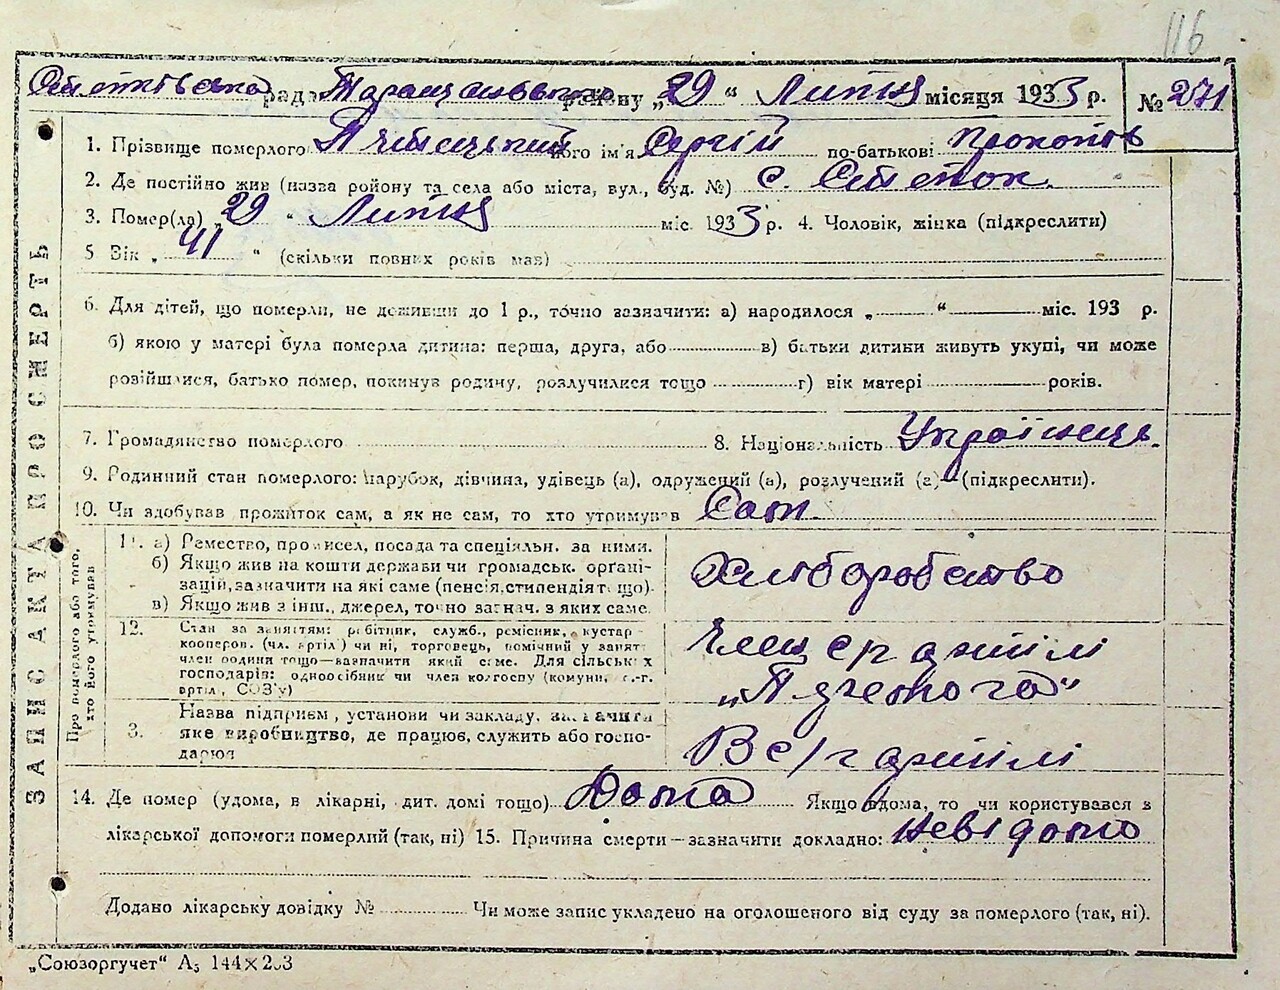 116
рада Таращанського району „29“ Липня місяця 1933 р. № 271
1. Прізвище померлого його ім'я Сергій по-батькові Прокопів
2. Де постійно жив (назва ройону та села або міста, вул., буд. №) с.
3. Помер(ла) „29“ Липня міс. 1933 р. 4. Чоловік, жінка (підкреслити)
5 Вік „41“ (скільки повних років мав)
6. Для дітей, що померли, не доживши до 1 р., точно зазначити: а) народилося „ “ міс. 193 р.
б) якою у матері була померла дитина: перша, друга, або в) батьки дитини живуть укупі, чи може
розійшлися, батько помер, покинув родину, розлучилися тощо г) вік матері років.
7. Громадянство померлого 8. Національність Українець.
9. Родинний стан померлого: парубок, дівчина, удівець (а), одружений (а), розлучений (а)—(підкреслити).
10. Чи здобував прожиток сам, а як не сам, то хто утримував Сам.
ЗАПИС АКТА ПРО СМЕРТЬ
Про померлого або того, хто його утримував
11. а) Ремество, промисел, посада та спеціяльн. за ними.
б) Якщо жив на кошти держави чи громадськ. орґані-
зацій, зазначити на які саме (пенсія, стипендія тощо).
в) Якщо жив з інш. джерел, точно зазнач. з яких саме.
Хліборобство
12. Стан за заняттям: робітник, служб., ремісник, кустар
кооперов. (чл. артіл) чи ні, торговець, помічний у занят.
член родини тощо—зазначити який саме. Для сільських
господарів: одноосібник чи член колгоспу (комуни, с.-г.
артіл, СОЗ'у)
Член с/г артілі
3. Назва підприєм, установи чи закладу, зазначити
яке виробництво, де працює, служить або госпо-
дарює
В с/г артілі
14. Де помер (удома, в лікарні, дит. домі тощо) Дома Якщо вдома, то чи користувався з
лікарської допомоги померлий (так, ні) 15. Причина смерти—зазначити докладно: невідомо
Додано лікарську довідку № Чи може запис укладено на оголошеного від суду за померлого (так, ні).
„Союзоргучет“ А₅ 144×203